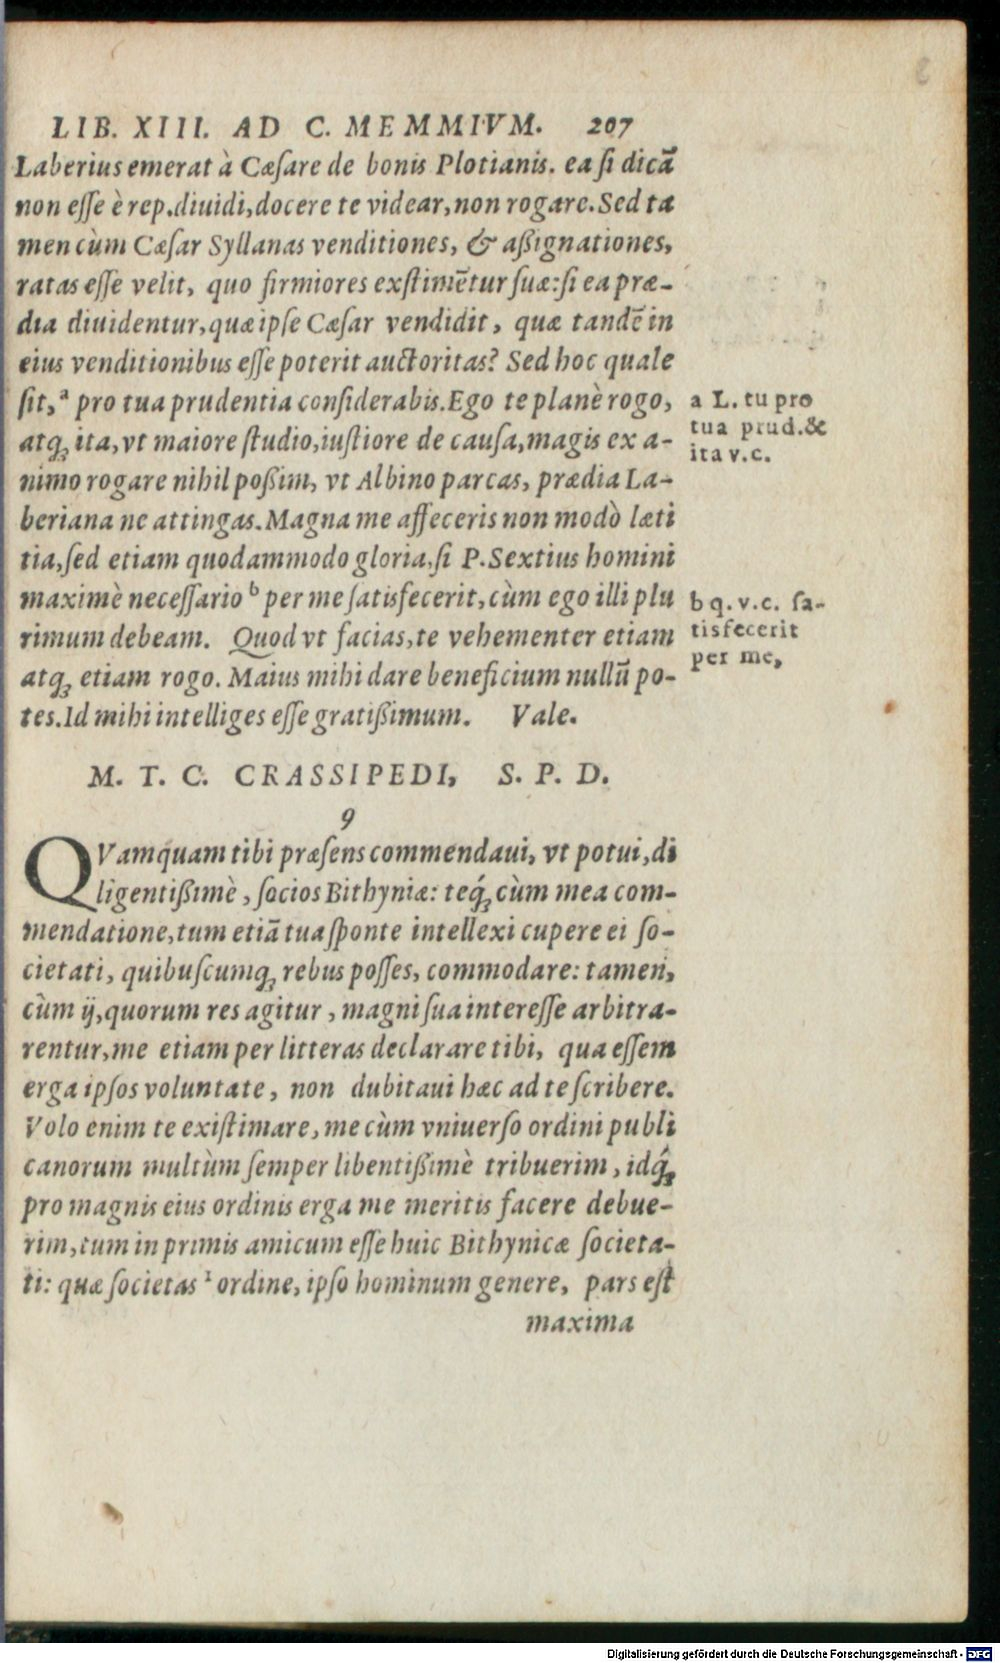 LIB. XIII. AD C. MEMMIVM. 207
Laberius emerat à Cæsare de bonis Plotianis. ea si dicā
non esse è rep. diuidi, docere te videar, non rogare. Sed ta
men cùm Cæsar Syllanas venditiones, & aßignationes,
ratas esse velit, quo firmiores exstimētur suæ: si ea præ-
dia diuidentur, quæ ipse Cæsar vendidit, quæ tandē in
eius venditionibus esse poterit auctoritas? Sed hoc quale
sit,ᵃ pro tua prudentia considerabis. Ego te planè rogo,
atq; ita, vt maiore studio, iustiore de causa, magis ex a-
nimo rogare nihil poßim, vt Albino parcas, prædia La-
beriana ne attingas. Magna me affeceris non modò læti
tia, sed etiam quodammodo gloria, si P. Sextius homini
maximè necessario ᵇ per me satisfecerit, cùm ego illi plu
rimum debeam. Quod vt facias, te vehementer etiam
atq; etiam rogo. Maius mihi dare beneficium nullū po-
tes. Id mihi intelliges esse gratißimum. Vale.
a L. tu pro
tua prud. &
ita v.c.
b q. v. c. sa-
tisfecerit
per me,
M. T. C. CRASSIPEDI, S. P. D.
9
QVamquam tibi præsens commendaui, vt potui, di
ligentißimè, socios Bithyniæ: teq́; cùm mea com-
mendatione, tum etiā tua sponte intellexi cupere ei so-
cietati, quibuscumq; rebus posses, commodare: tamen,
cùm ij, quorum res agitur, magni sua interesse arbitra-
rentur, me etiam per litteras declarare tibi, qua essem
erga ipsos voluntate, non dubitaui hæc ad te scribere.
Volo enim te existimare, me cùm vniuerso ordini publi
canorum multùm semper libentißimè tribuerim, idq́;
pro magnis eius ordinis erga me meritis facere debue-
rim, tum in primis amicum esse huic Bithynicæ societa-
ti: quæ societas ¹ ordine, ipso hominum genere, pars est
maxima
Digitalisierung gefördert durch die Deutsche Forschungsgemeinschaft - DFG